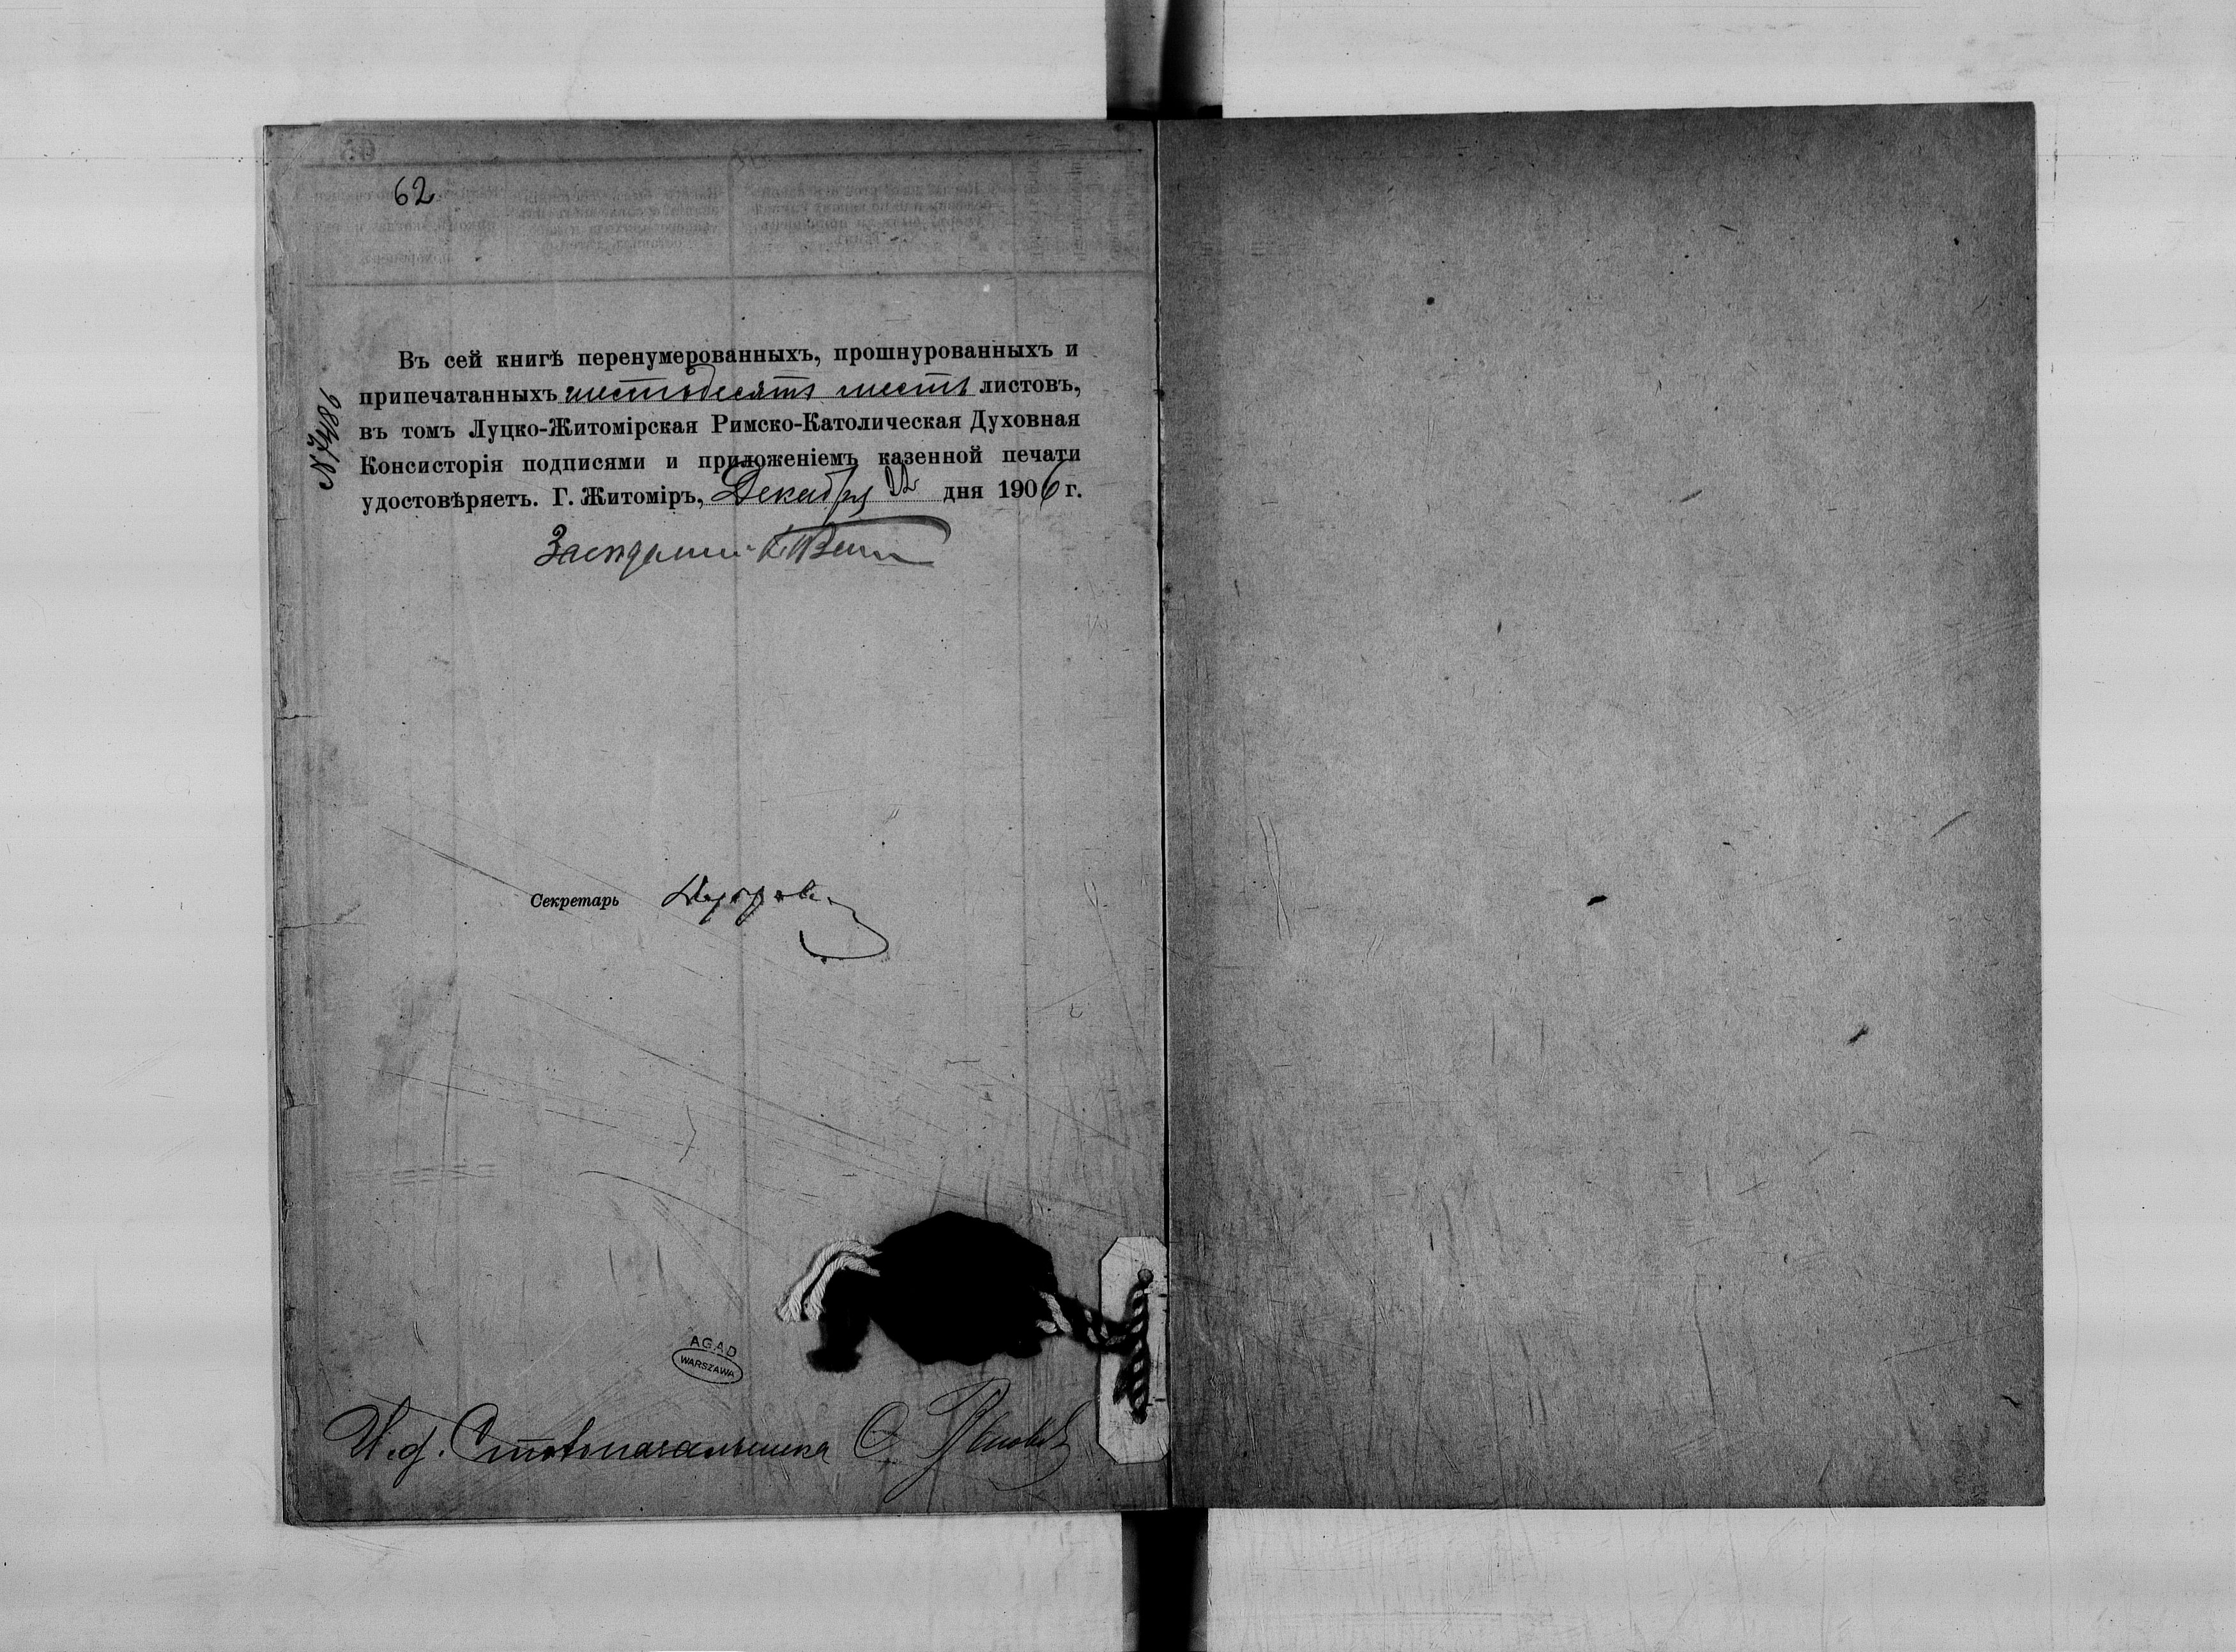 62
Въ сей книгѣ перенумерованныхъ, прошнурованныхъ и
припечатанныхъ шестьдесятъ шесть листовъ,
въ томъ Луцко-Житомірская Римско-Католическая Духовная
Консисторія подписями и приложеніемъ казенной печати
удостовѣряетъ. Г. Житоміръ, Декабря 22 дня 1906 г.
№ 7486
Секретарь
AGAD
WARSZAWA
И. д. Столоначальника